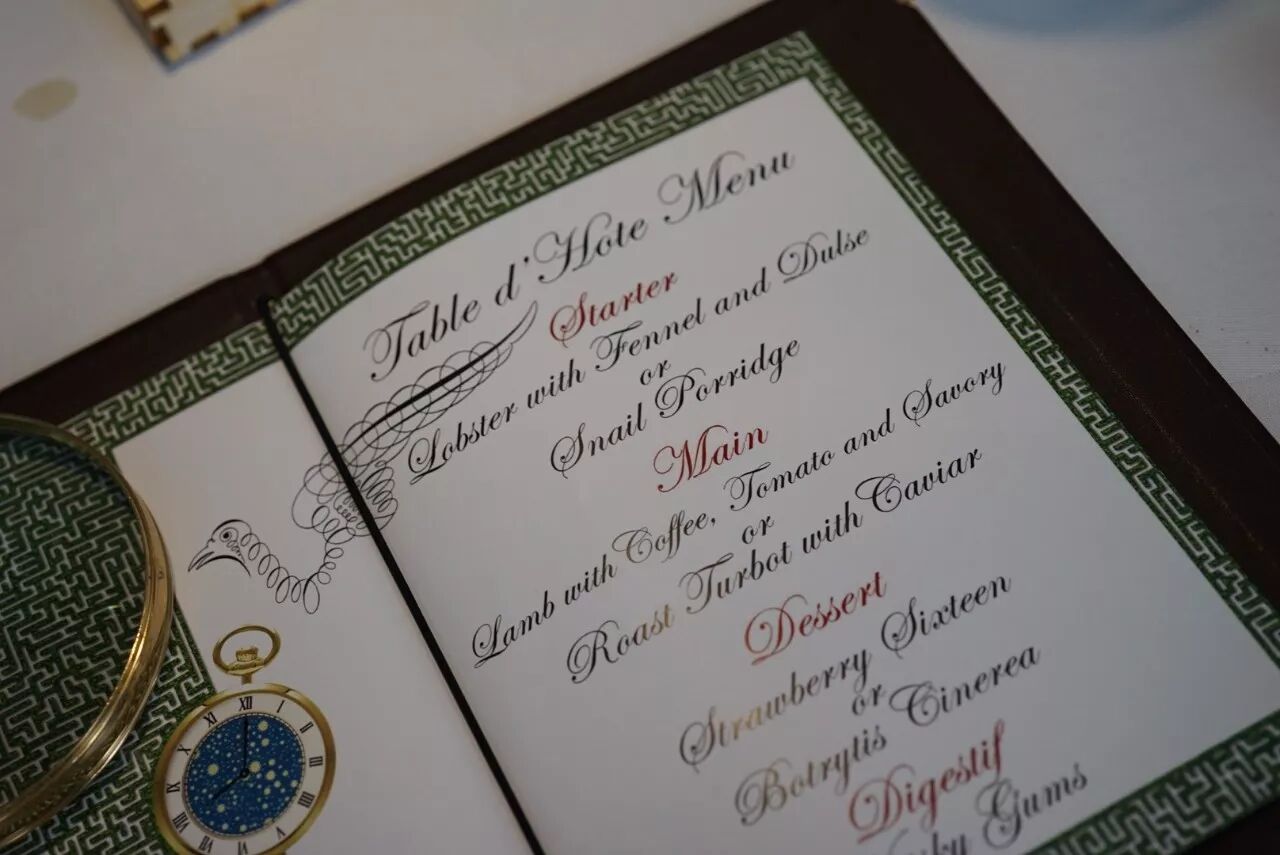 Table d'Hote Menu
Starter
Lobster with Fennel and Dulse
or
Snail Porridge
Main
Lamb with Coffee, Tomato and Savory
or
Roast Turbot with Caviar
Dessert
Strawberry Sixteen
or
Botrytis Cinerea
Digestif
Gums
XII
I
II
III
IIII
V
VI
VII
VIII
IX
X
XI